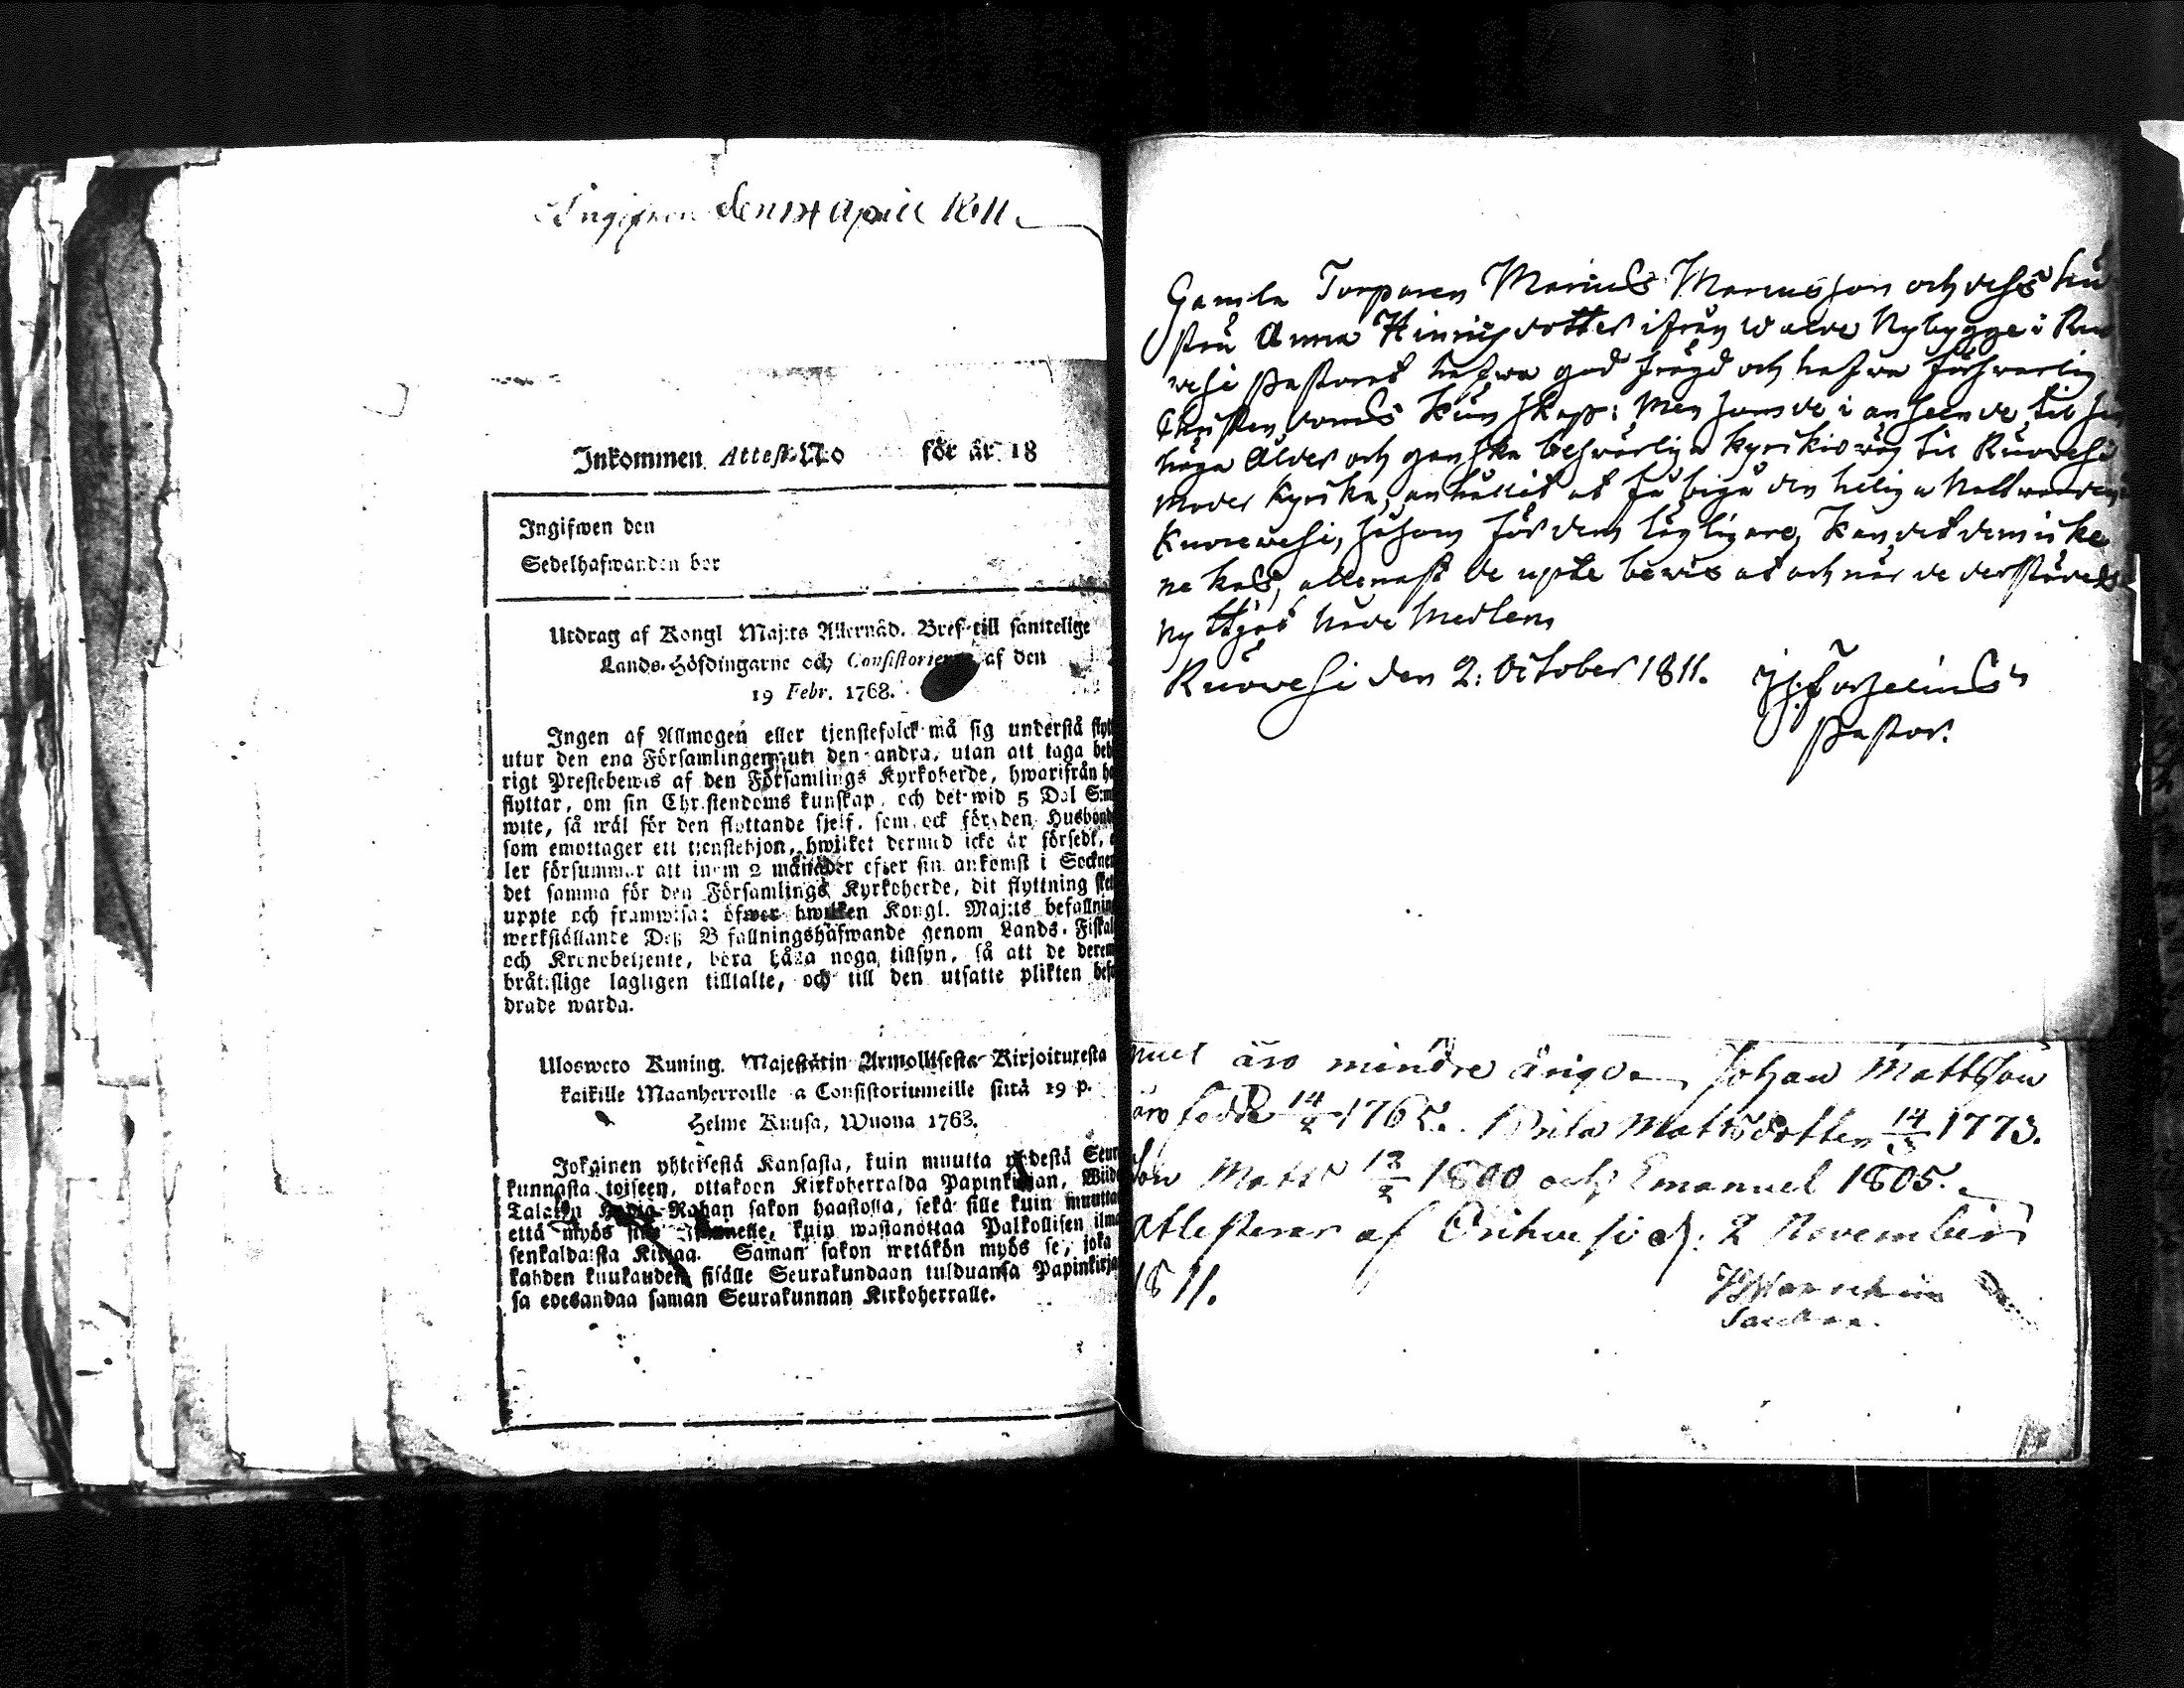 Ingifven den 14 Aprill 1811.
Inkommen Attest. N:o för år 18
Ingifwen den
Sedelhafwanden bor
Utdrag af Kongl Maj:ts Allernåd. Bref till samtelige
Lands-Höfdingarne och Consistorierne af den
19 Febr. 1768.
Ingen af Allmogen eller tjenstefolck må sig understå
utur den ena Församlingen uti den andra, utan att taga
rigt Prestebewis af den Församlings Kyrkoherde, hwarifrån
flyttar, om sin Christendoms kunskap, och det wid 5 Dal S:mt
wite, så wäl för den flyttande sjelf, som ock för den Husbonde
som emottager ett tjenstehjon, hwilket dermed icke är försedt,
ler försummar att inom 2 månader efter sin ankomst i Socknen
det samma för den Församlings Kyrkoherde, dit flyttning
uppte och framwisa; öfwer hwilken Kongl. Maj:ts befallning
werkställande Deß Befallningshafwande genom Lands-Fiskal
och Kronobetjente, böra hålla noga tillsyn, så att de
bråtslige lagligen tilltalte, och till den utsatte plikten
drade warda.
Ulosweto Kuning. Majestätin Armollisesta Kirjoituxesta
kaikille Maanherroille ja Consistoriumeille siitä 19 p.
Helme Kuusa, Wuona 1768.
Jokainen yhteisestä Kansasta, kuin muutta yhdestä
kunnasta toiseen, ottakoon Kirkoherralda Papinkirjan,
Talarin Hopia-Rahan sakon haastolla, sekä sille kuin muutta
että myös sille Isännelle, kuin wastanottaa Palkollisen
senkaldaista Kirjaa. Saman sakon wetäkön myös se, joka
kahden kuukauden sisälle Seurakundaan tulduansa
sa edesandaa saman Seurakunnan Kirkoherralle.
Gamla Torparen Marcus Marcusson och dess hu
stru Anna Hinrichsdotter ifrån Nybygge i
vesi Pastorat hafva god frägd och hafva försvarlig
Christendoms Kunskap: Men som de i anseende til
höga Ålder och ganska besvärliga kyrkioväg til Ruovesi
Moder Kyrka, anhållit at få begå den heliga Nattvarden
Kuorevesi, såsom för dem lägligare, Kan det dem icke
nekas, allenast de upte bevis at och när de
Ruovesi den 2: October 1811.
Pastor.
äro mindre Johan Mattsson
äro född 14/ 1765. Brita Mattsdotter 14/3 1773.
Matts 1800 och Emanuel 1805.
Attesterar af Orihvesi d. 2 November
1811.